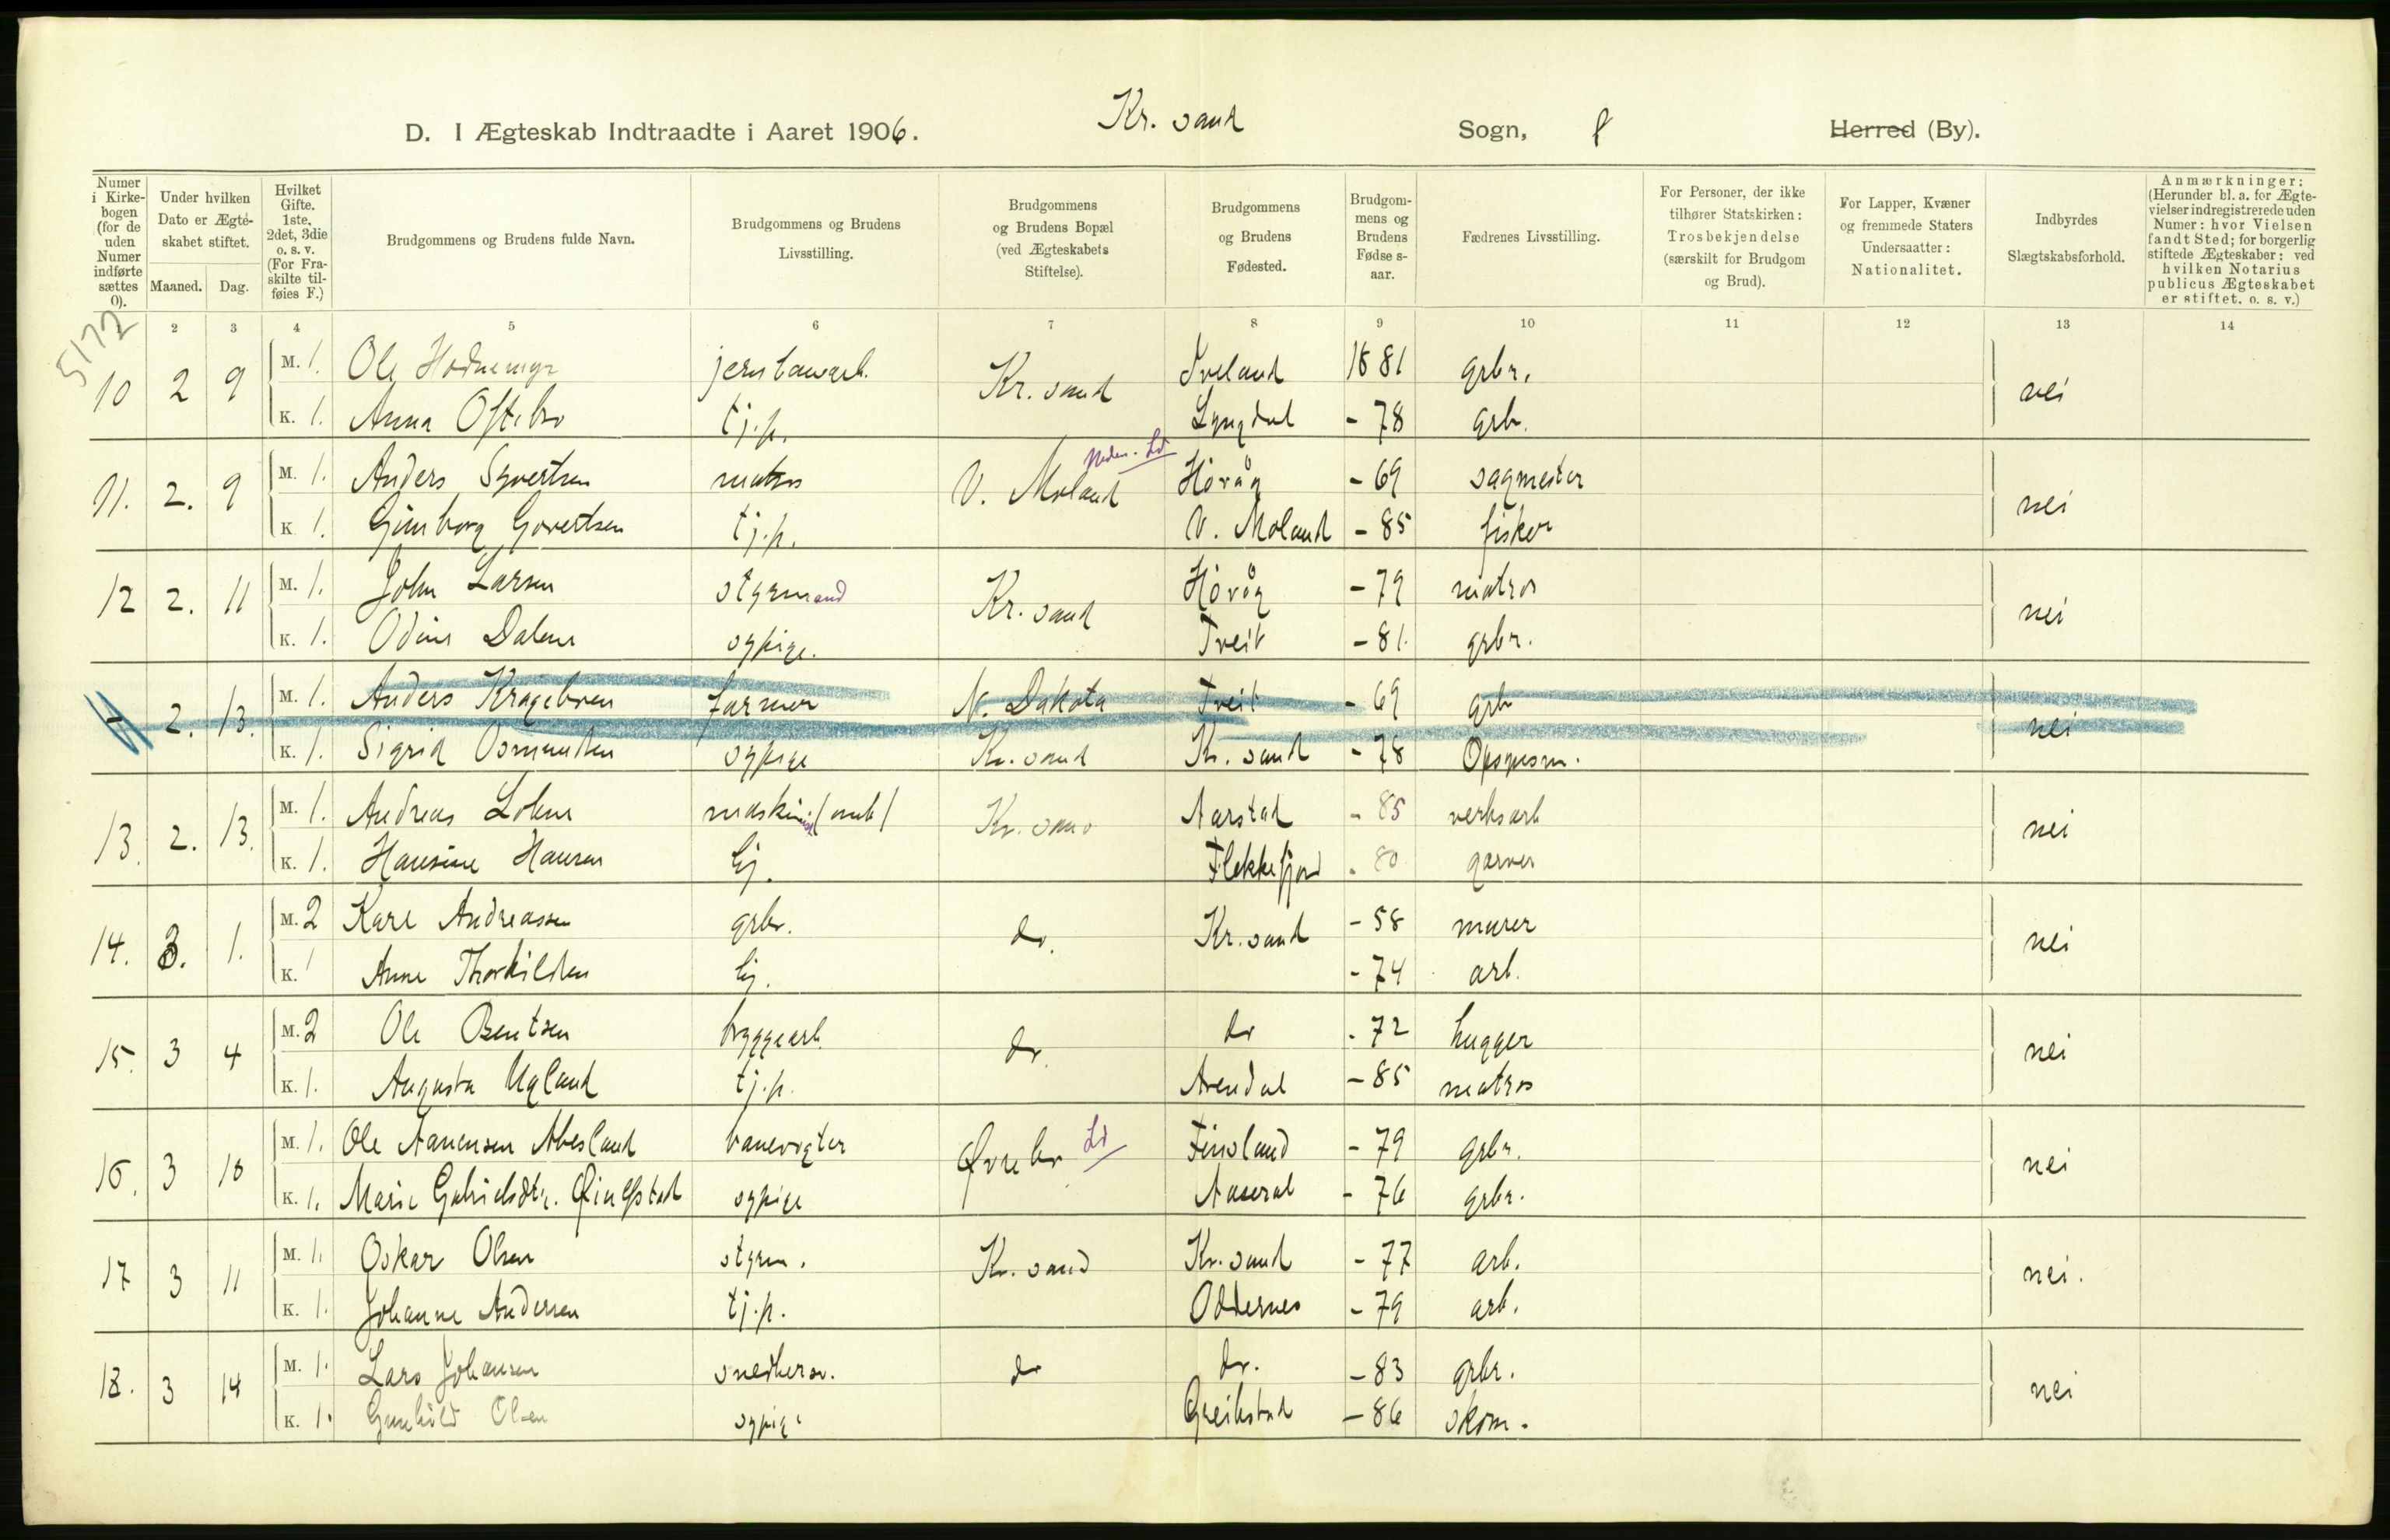 D. I Ægteskab Indtraadte i Aaret 1906. Kr. sand Sogn, Herred (By).
Numer i Kirkebogen (for de uden Numer indførte sættes 0).
Under hvilken Dato er Ægteskabet stiftet.
Maaned. Dag.
Hvilket Gifte. 1ste, 2det, 3die o. s. v. (For Fraskilte tilføies F.)
Brudgommens og Brudens fulde Navn.
Brudgommens og Brudens Livsstilling.
Brudgommens og Brudens Bopæl (ved Ægteskabets Stiftelse).
Brudgommens og Brudens Fødested.
Brudgommens og Brudens Fødselsaar.
Fædrenes Livsstilling.
For Personer, der ikke tilhører Statskirken: Trosbekjendelse (særskilt for Brudgom og Brud).
For Lapper, Kvæner og fremmede Staters Undersaatter: Nationalitet.
Indbyrdes Slægtskabsforhold.
Anmærkninger: (Herunder bl. a. for Ægtevielser indregistrerede uden Numer: hvor Vielsen fandt Sted; for borgerlig stiftede Ægteskaber: ved hvilken Notarius publicus Ægteskabet er stiftet. o. s. v.)
5172
2 3 4 5 6 7 8 9 10 11 12 13 14
10 2 9 M. 1. Ole Hodnemyr jernbanearb. Kr. sand Iveland 1881 grbr. nei
K. 1. Anna Oftebro tj.p. Lyngdal - 78 grb.
11. 2. 9 M. 1. Anders Syvertsen matros V. Moland Neden. Ld Høvåg - 69 sagmester nei
K 1. Gunborg Govertsen tj.p. V. Moland - 85 fisker
12 2. 11 M. 1. John Larsen styrmand Kr. sand Høvåg - 79 matros nei
K. 1. Odine Dalene sypige. Tveit - 81. grbr.
2. 13. M. 1. Anders Krageboen farmer N. Dakota Tveit - 69 grb nei
K. 1. Sigrid Osmundsen sypige Kr. sand Kr. sand - 78 Opsynsm.
13. 2. 13. M. 1. Andreas Lohne Kr. sand Aarstad - 85 verksarb nei
K. 1. Hansine Hansen tj. Flekkefjord - 80 garver
14. 3. 1. M. 2 Karl Andreassen grbr. do. Kr. sand - 58 murer nei
K. 1 Anne Thorkildsen tj. - 74 arb.
15. 3 4 M. 2 Ole Bentsen bryggearb. do. do - 72 hugger nei
K. 1. Augusta Ugland tj.p. Arendal - 85 matros
16. 3 10 M. 1. Ole Aanensen Abesland banevogter Øvrebø Ld Finsland - 79 grbr. nei
K. 1. Marie Gabrielsdtr. sypige Aaseral - 76 grbr.
17 3 11 M. 1. Oskar Olsen styrm. Kr. sand Kr. sand - 77 arb. nei.
K. 1. Johanne Andersen tj.p. Oddernes - 79 arb.
18. 3 14 M. 1. Lars Johansen snedkersv. do do. - 83 grbr. nei
K. 1. Gunhild Olsen sypige Greibstad - 86 skom.